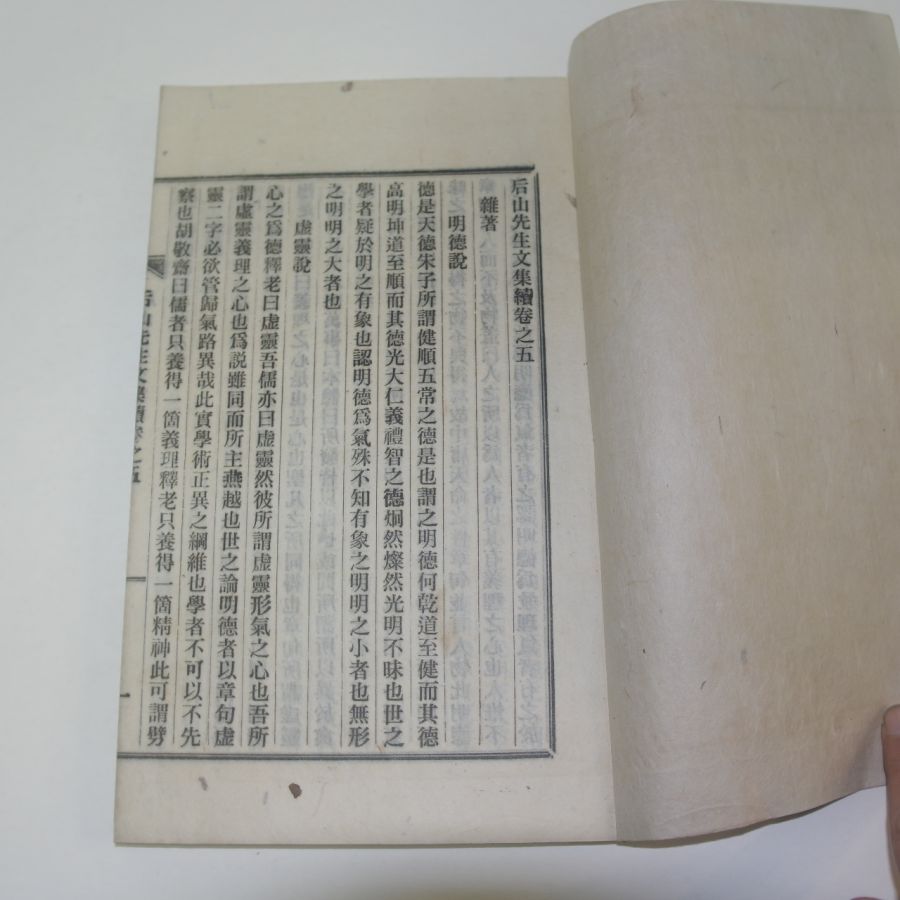 后山先生文集續卷之五
雜著
明德說
德是天德朱子所謂健順五常之德是也謂之明德何乾道至健而其德
高明坤道至順而其德光大仁義禮智之德烱然燦然光明不昧也世之
學者疑於明之有象也認明德爲氣殊不知有象之明明之小者也無形
之明明之大者也
虛靈說
心之爲德釋老曰虛靈吾儒亦曰虛靈然彼所謂虛靈形氣之心也吾所
謂虛靈義理之心也爲說雖同而所主燕越也世之論明德者以章句虛
靈二字必欲管歸氣路異哉此實學術正異之綱維也學者不可以不先
察也胡敬齋曰儒者只養得一箇義理釋老只養得一箇精神此可謂劈
后山先生文集續卷之五
一